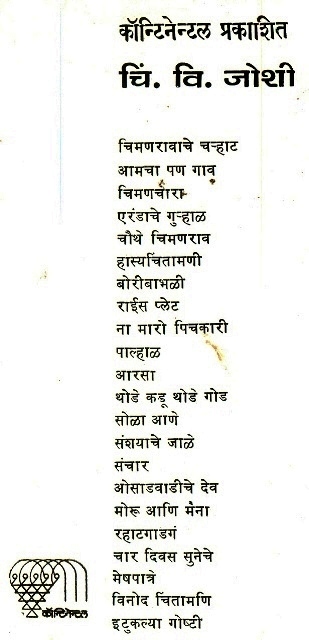 कॉन्टिनेन्टल प्रकाशित
चिं. वि. जोशी
चिमणरावाचे चऱ्हाट
आमचा पण गाव
चिमणचारा
एरंडाचे गुऱ्हाळ
चौथे चिमणराव
हास्यचिंतामणी
बोरीबाभळी
राईस प्लेट
ना मारो पिचकारी
पाल्हाळ
आरसा
थोडे कडू थोडे गोड
सोळा आणे
संशयाचे जाळे
संचार
ओसाडवाडीचे देव
मोरू आणि मैना
रहाटगाडगं
चार दिवस सुनेचे
मेषपात्रे
विनोद चिंतामणि
इटुकल्या गोष्टी
कॉन्टिनेन्टल